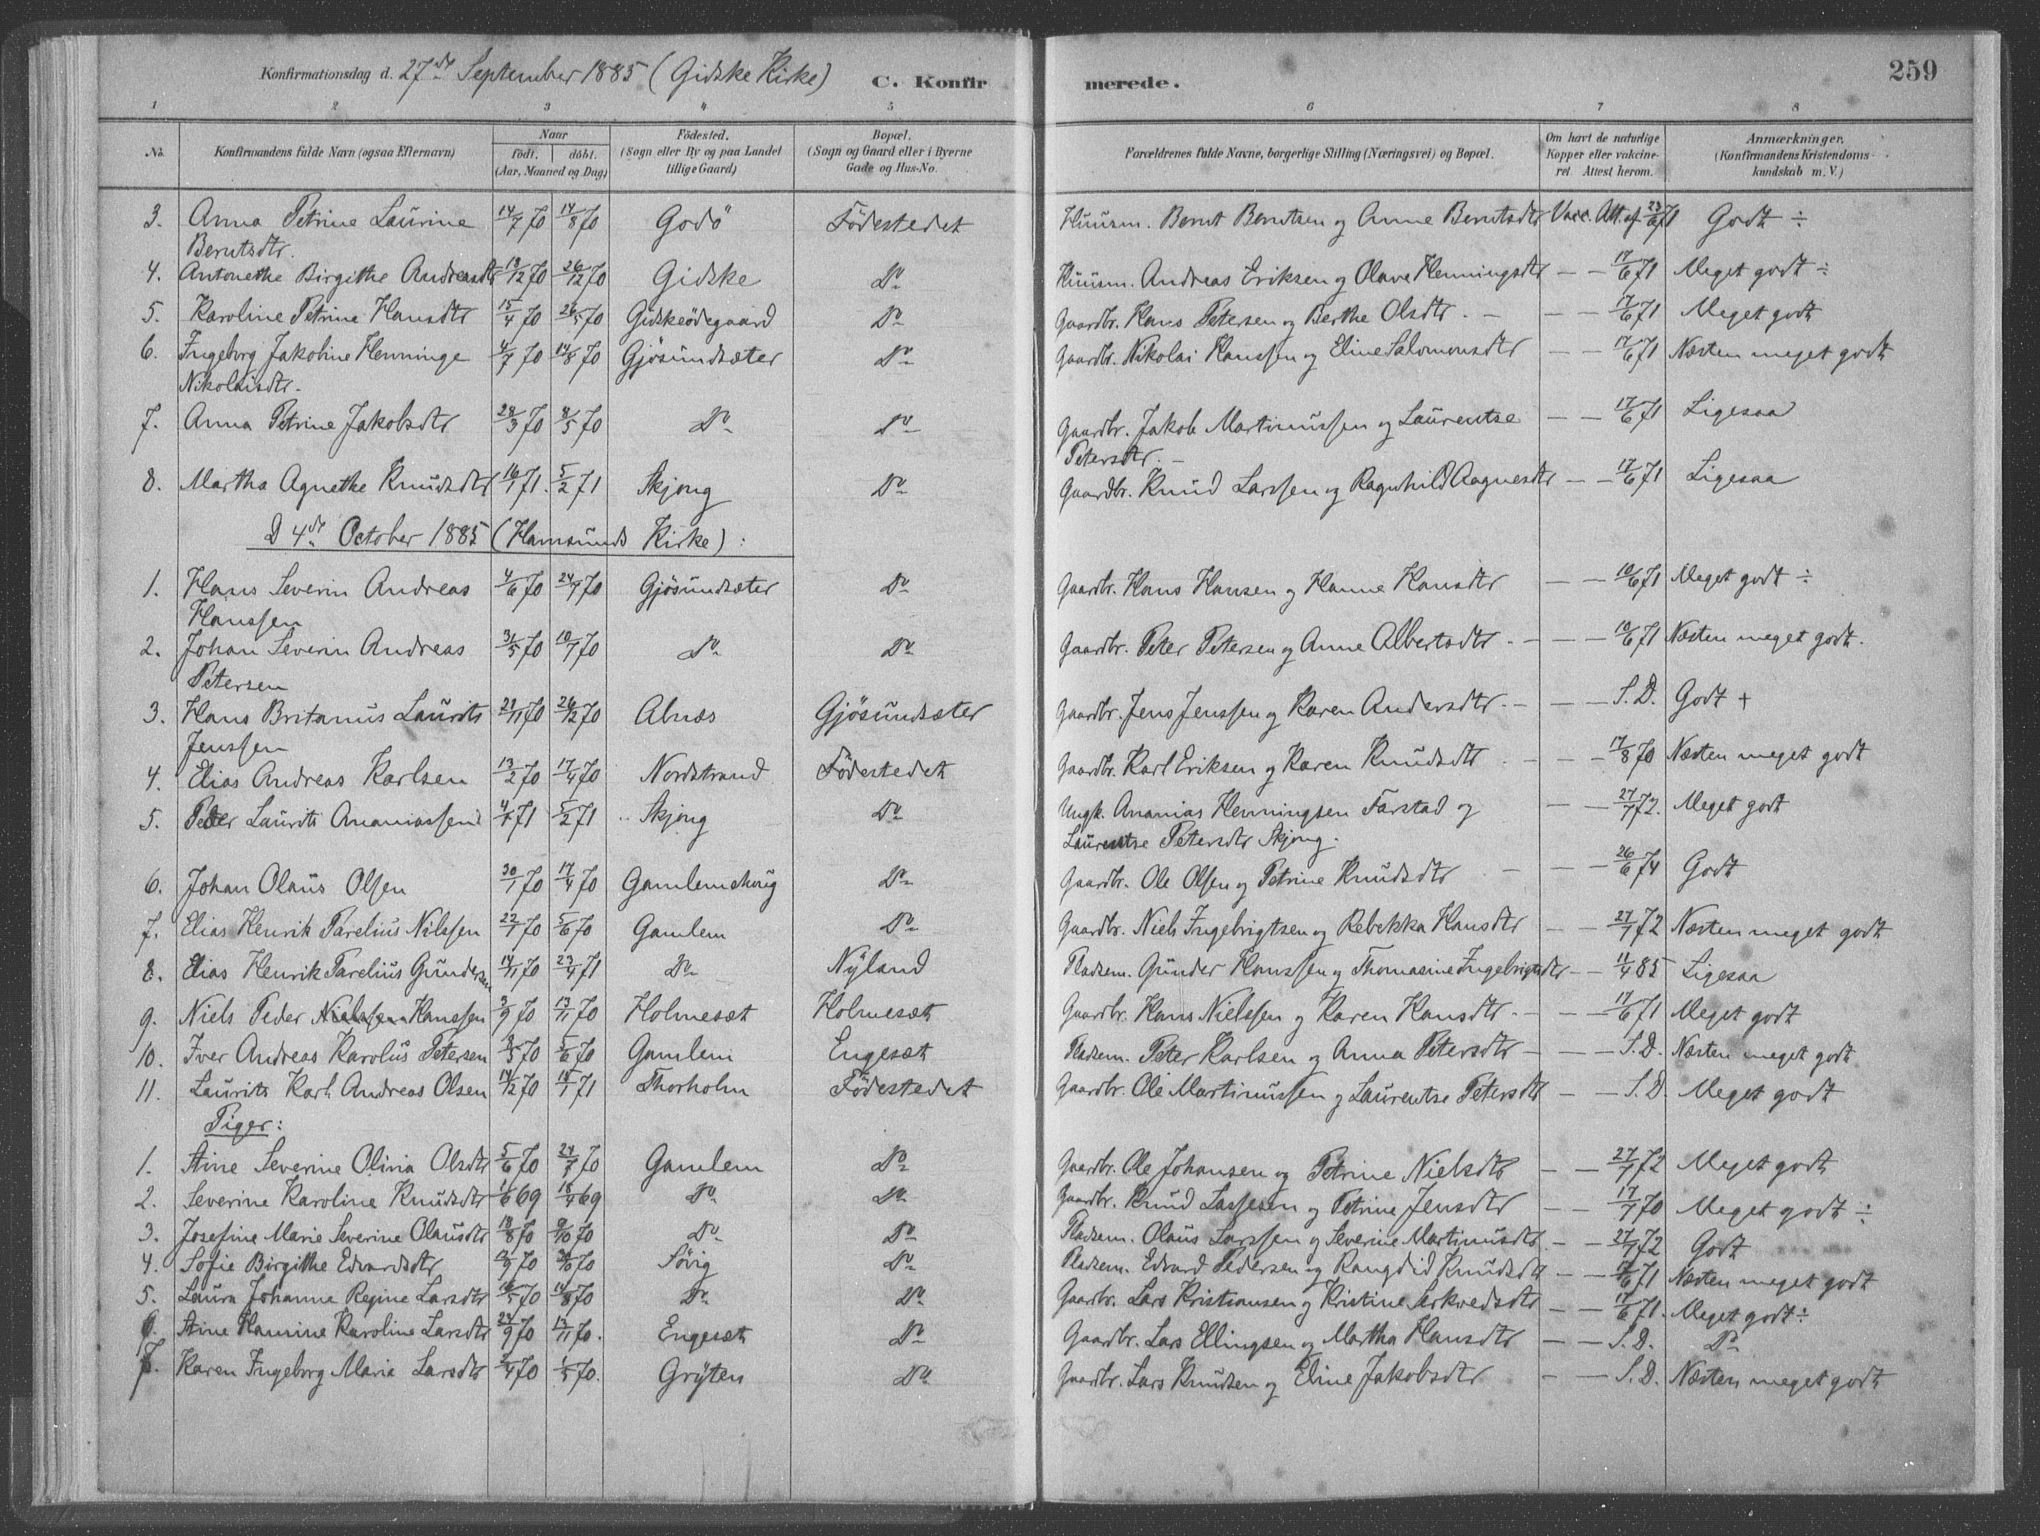 Konfirmationsdag d. 27de September 1885 (Gidske Kirke) C. Konfir merede. 259
1 2 3 4 5 6 7 8
No. Konfirmandens fulde Navn (ogsaa Efternavn) Naar födt. döbt. (Aar, Maaned og Dag) Födested. (Sogn eller By og paa Landet tillige Gaard) Bopæl. (Sogn og Gaard eller i Byerne Gade og Hus-No. Forældrenes fulde Navne, borgerlige Stilling (Næringsvei) og Bopæl. Om havt de naturlige Kopper eller vakcineret. Attest herom. Anmærkninger. (Konfirmandens Kristendomskundskab m. V.)
3. Anna Petrine Laurine 14/7 70 14/8 70 Godö Födestedet Huusm. Bernt Berntsen og Anne Berntsdtr Vacc. Att. af 23/6 71 Godt ÷
Berntsdtr.
4. Antonethe Birgithe Andreasdtr 13/12 70 26/12 70 Gidske Do Huusm. Andreas Eriksen og Olave Henningsdtr — — 17/6 71 Meget godt ÷
5. Karoline Petrine Hansdtr 15/4 70 26/5 70 Gidskeödegaard Do Gaardbr. Hans Petersen og Berthe Olsdtr. — — — 17/6 71 Meget godt
6. Ingeborg Jakobine Henninge 4/7 70 14/8 70 Gjösundsæter Do Gaardbr. Nikolai Hanssen og Eline Salomonsdtr — — 17/6 71 Næsten meget godt
Nikolaisdtr.
7. Anna Petrine Jakobsdtr 28/3 70 8/5 70 Do Do Gaardbr. Jakob Martinussen og Laurentse — — 17/6 71 Ligesaa
Petersdtr. —
8. Martha Agnethe Knudsdtr 16/1 71. 5/2 71 Skjong Do Gaardbr. Knud Larssen og Ragnhild Aagnesdtr — — 17/6 71 Ligesaa
D 4de October 1885 (Hamsunds Kirke):
1. Hans Severin Andreas 4/6 70 24/7 70 Gjösundsæter Do Gaardbr. Hans Hansen og Hanne Hansdtr — — 10/6 71 Meget godt ÷
Hanssen
2. Johan Severin Andreas 31/5 70 10/7 70 Do Do Gaardbr. Peter Petersen og Anne Albertsdtr. — — — 10/6 71 Næsten meget godt.
Petersen
3. Hans Britanus Laurits 21/11 70 26/12 70 Alnæs Gjösundsæter Gaardbr. Jens Jenssen og Karen Andersdtr. — — — S. D. Godt +
Jenssen
4. Elias Andreas Karlsen 13/2 70 17/4 70 Nordstrand Födestedet Gaardbr. Karl Eriksen og Karen Knudsdtr — — 17/8 70 Næsten meget godt
5. Peder Laurits Ananiassen 4/1 71 5/2 71 Skjong Do Ungk. Ananias Henningsen Farstad og — — 27/7 72. Meget godt
Laurentse Petersdtr Skjong.
6. Johan Olaus Olsen 30/1 70 17/4 70 Gamlemshoug Do Gaardbr. Ole Olsen og Petrine Knudsdtr — — — 26/6 74 Godt
7. Elias Henrik Parelius Nilssen 22/1 70 5/6 70 Gamlem Do Gaardbr. Niels Ingebrigtsen og Rebekka Hansdtr — — 27/7 72 Næsten meget godt
8. Elias Henrik Parelius Gundersen 14/11 70 23/4 71 Do Nyland Pladsem. Gunder Hanssen og Thomasine Ingebrigtsdtr — — 11/4 85 Ligesaa
9. Niels Peder Nielssen Hanssen 3/9 70 13/11 70 Holmesæt Holmesæt Gaardbr. Hans Nielssen og Karen Hansdtr. — — — 17/6 71 Meget godt
10. Iver Andreas Karolus Petersen 2/5 70 5/6 70 Gamlem Engesæt Pladsem. Peter Karlsen og Anna Petersdtr — — — S. D. Næsten meget godt
11. Laurits Karl Andreas Olsen 14/12 70 15/1 71 Thorholm Födestedet Gaardbr. Ole Martinussen og Laurentse Petersdtr — — S. D. Meget godt
Piger:
1. Stine Severine Olivia Olsdtr 5/6 70 24/7 70 Gamlem Do Gaardbr. Ole Johansen og Petrine Nielsdtr — — 27/7 72 Meget godt
2. Severine Karoline Knudsdtr 1/6 69 18/4 69 Do Do Gaardbr. Knud Lassesen og Petrine Jensdtr — — 17/7 70 Meget godt ÷
3. Josefine Marie Severine Olausdtr 18/8 70 9/10 70 Do Do Pladsem. Olaus Larssen og Severine Martinusdtr. — — 27/7 72 Godt
4. Sofie Birgithe Edvardsdtr Sövig Do Pladsem. Edvard Pedersen og Rangdid Knudsdtr — — 17/6 71 Næsten meget godt
5. Laura Johanne Regine Larsdtr 16/5 70 14/8 70 Do Do Gaardbr. Lars Kristiansen og Kristine Serkvedsdtr — — 17/6 71. Meget godt ÷
6. Stine Hanine Karoline Larsdtr 24/9 70 13/11 70. Engesæt Do Gaardbr. Lars Ellingsen og Martha Hansdtr — — S. D. Do
7. Karen Ingeborg Maria Larsdtr 2/4 70 1/5 70. Gryten Do Gaardbr. Lars Knudsen og Eline Jakobsdtr — — S. D. Næsten meget godt